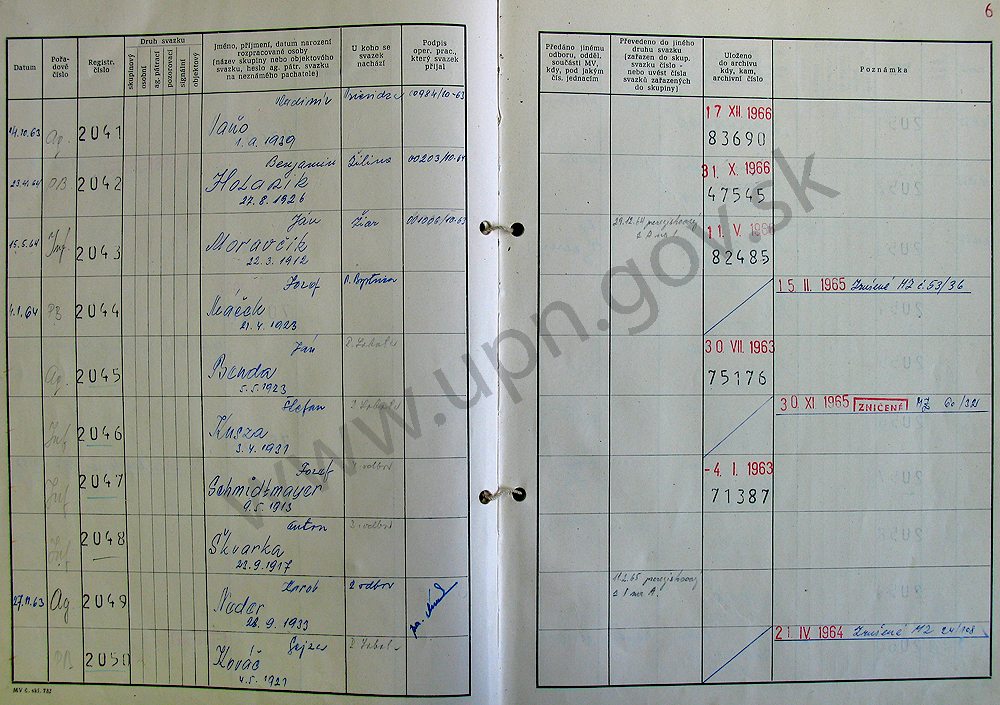 6
Datum
Pořadové číslo
Registr. číslo
Druh svazku
skupinový
osobní
ag. pátrací
pozorovací
signální
objektový
Jméno, příjmení, datum narození
rozpracované osoby
(název skupiny nebo objektového
svazku, heslo ag. pátr. svazku
na neznámého pachatele)
U koho se
svazek
nachází
Podpis
oper. prac.,
který svazek
přijal
Předáno jinému
odboru, odděl.
součásti MV,
kdy, pod jakým
čís. jednacím
Převedeno do jiného
druhu svazku
(zařazen do skup.
svazku číslo -
nebo uvést čísla
svazků zařazených
do skupiny)
Uloženo
do archivu
kdy, kam,
archivní číslo
Poznámka
14.10.63 Ag. 2041 Vladimír 00984/10-63
1.9.1939
17 XII. 1966
83690
2042 Benjamin Žilina 00203/10-64
27.8.1926
31. X. 1966
47545
15.5.64 Inf. 2043 Ján Žiar
Moravčík
22.3.1912
29.12.64
11. V. 1966
82485
4.1.64 2044 Jozef B. Bystrica
Máčik
21.4.1923
15. II. 1965 Zrušené MZ č. 53/36
Ag. 2045 Ján
Benda
5.5.1923
30. VII. 1963
75176
Inf. 2046 Štefan
Kusza
3.4.1931
30. XI 1965 ZNIČENÉ MZ 60/321
Inf. 2047 Jozef odbor
Schmidtmayer
9.5.1913
-4. I. 1963
71387
Inf. 2048 Anton odbor
Škvarka
22.9.1917
27.11.63 Ag 2049 Karol 2 odbor
Nader
28.9.1933
11.2.65
2050 Gejza
Kováč
4.5.1921
21 IV 1964 Zrušené MZ 24/108
MV č. skl. 782
www.upn.gov.sk